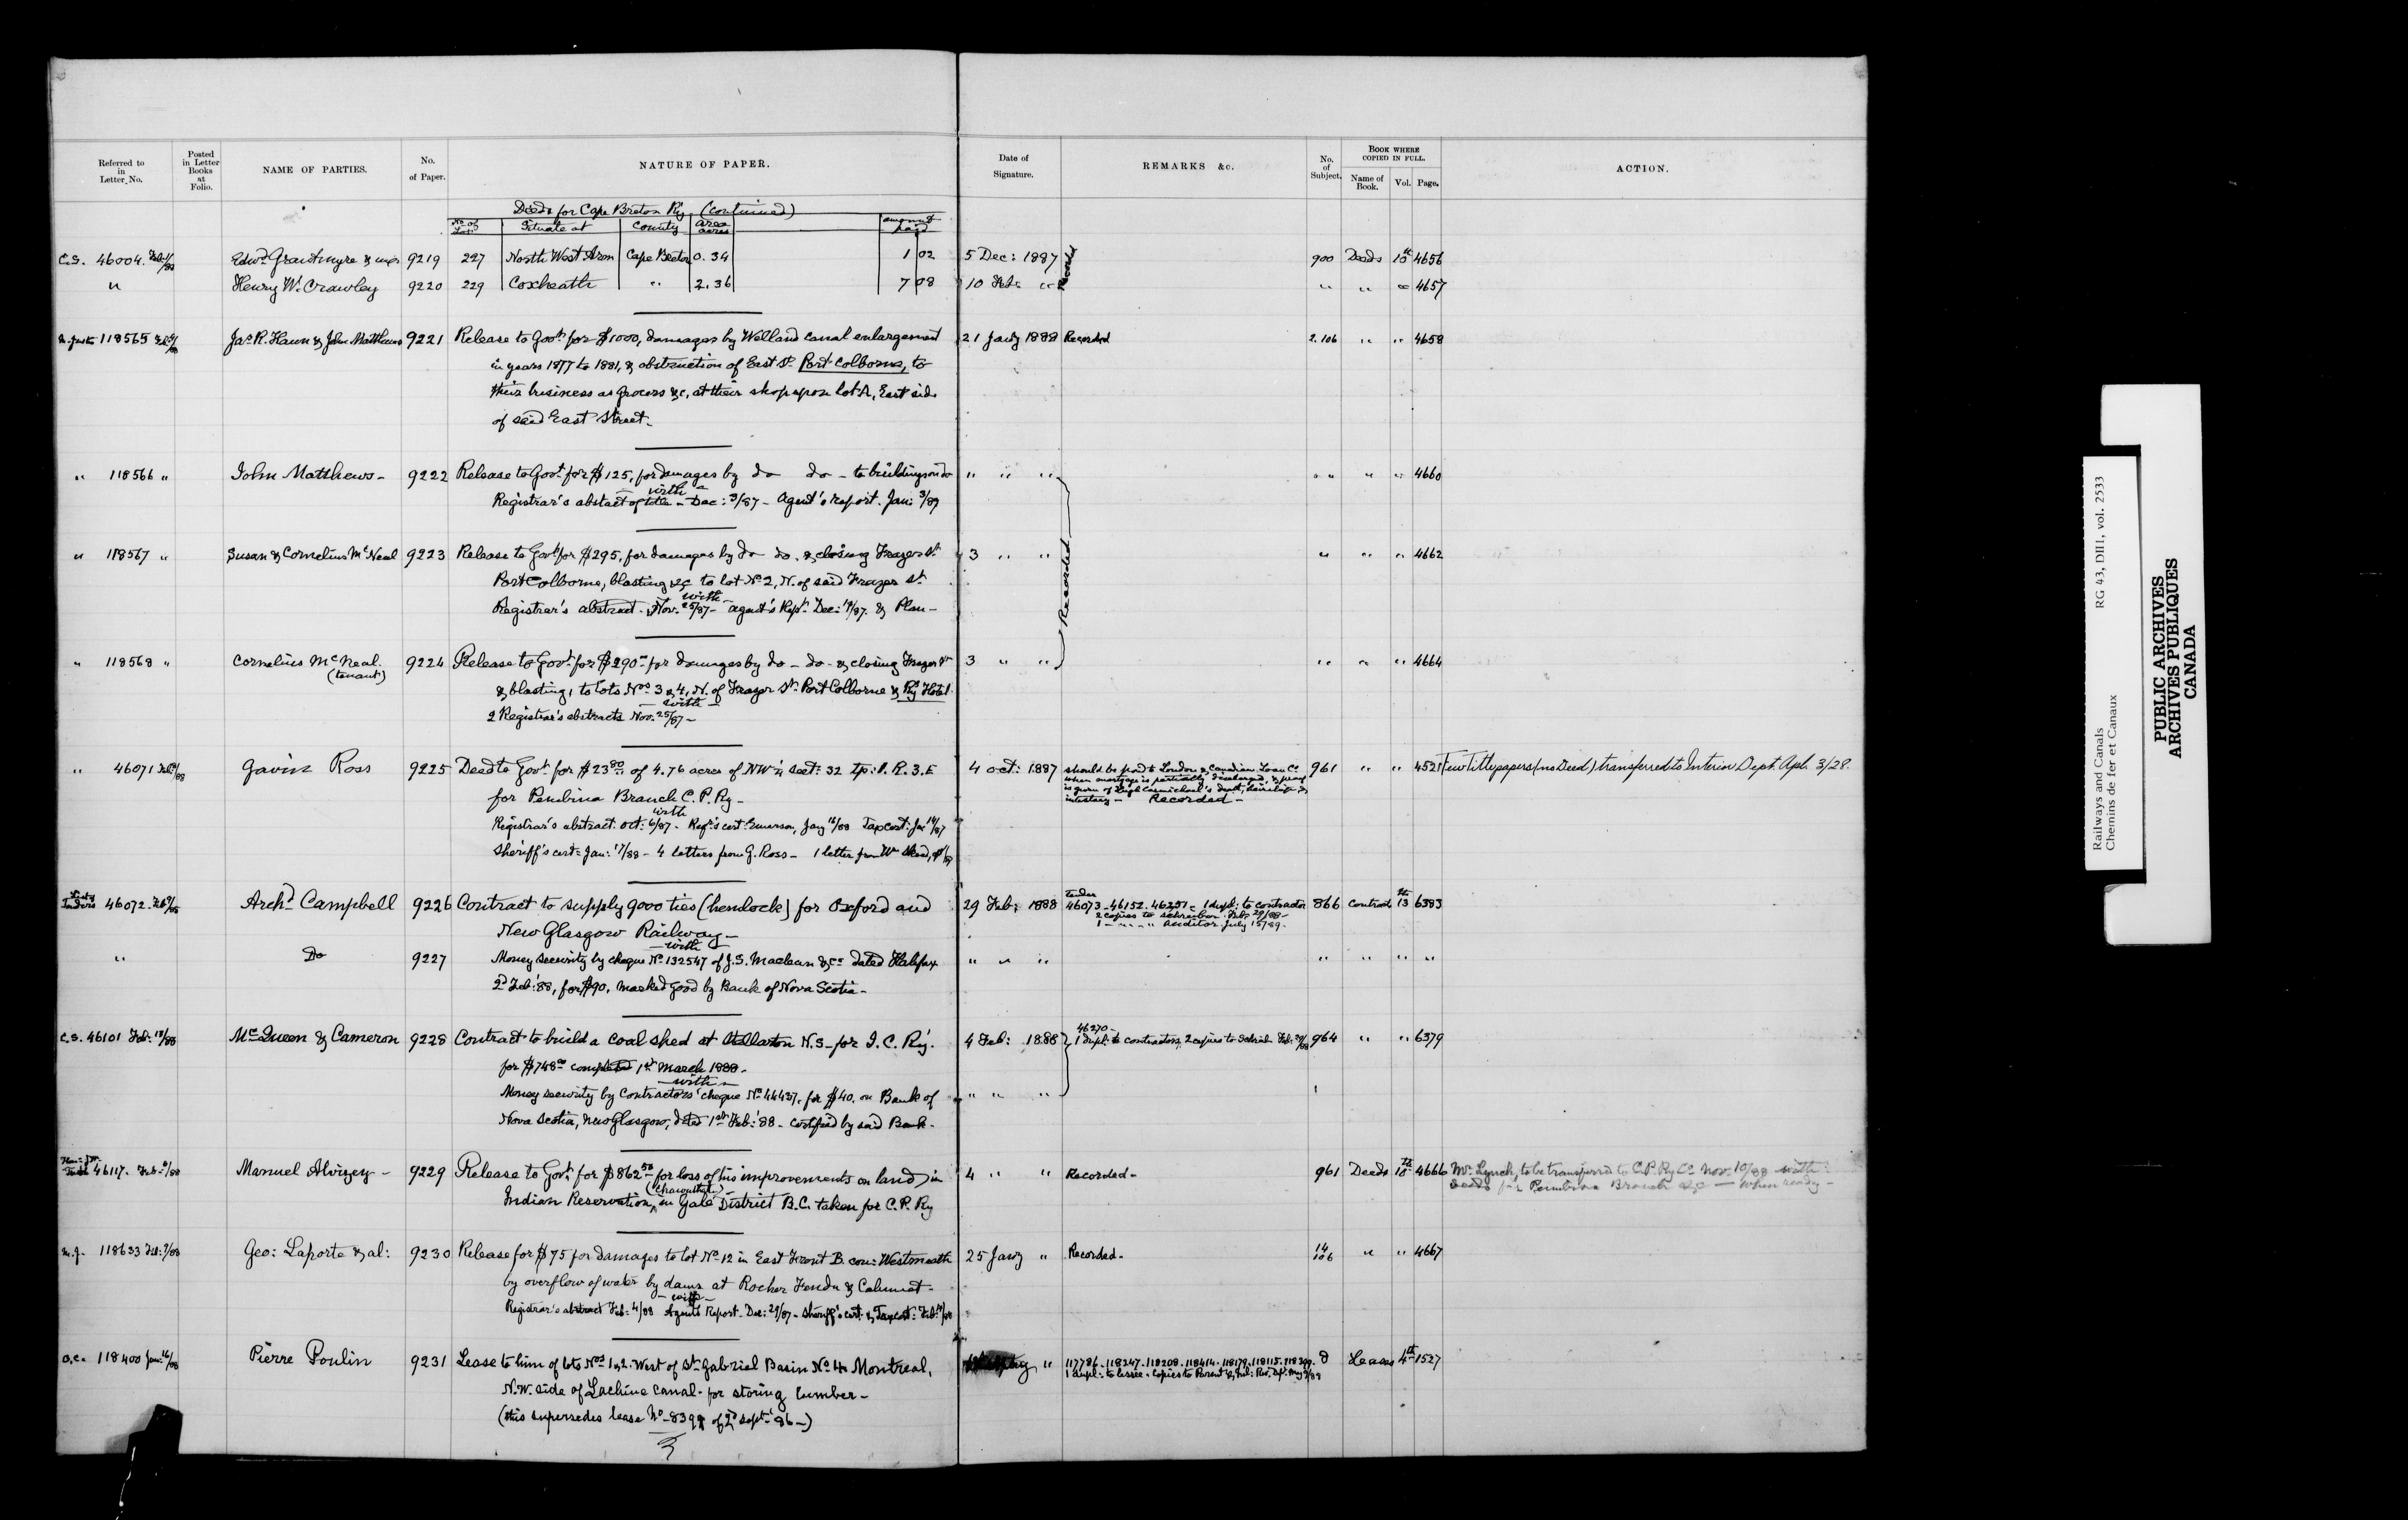 Referred to in Letter No.
Posted in Letter Books at Folio.
NAME OF PARTIES.
No. of Paper.
NATURE OF PAPER.
Date of Signature.
REMARKS &c.
No. of Subject.
BOOK WHERE COPIED IN FULL.
Name of Book.
Vol.
Page.
ACTION.
Deeds for Cape Breton Ry. (continued)
No of Lot Situate at County area acres amount paid
C.S. 46004 Henry 9219 227 North West Arm Cape Breton 0.34 1 02 5 Dec: 1887 900 Deeds 18th 4656
" Henry W. Crawley 9220 229 Coxheath " 2.36 7 08 10 Feb: " " " " 4657
118565 Jas R. Haun & John Matthews 9221 Release to Govt. for $1000, damages by Welland canal enlargement 21 Jany 1888 Recorded 2.106 " " 4658
in years 1877 to 1881, & obstruction of East St. Port Colborne, to
their business as grocers &c, at their shop upon lot A, East side
of said East Street.
" 118566 " John Matthews - 9222 Release to Govt. for $125, for damages by do do - to buildings on do " " " " " " " 4660
- with -
Registrar's abstract of title - Dec: 3/87 - Agent's report. Jan: 3/89
" 118567 " Susan & Cornelius McNeal 9223 Release to Govt for $295, for damages by do do. & closing Frazer St. 3 " " Recorded " " " 4662
Port Colborne, blasting &c to lot No 2, N. of said Frazer St.
- with -
Registrar's abstract. Nov. 25/87 - agent's Rept. Dec: 19/87. & Plan -
" 118568 " Cornelius McNeal. 9224 Release to Govt. for $290 for damages by do - do - & closing Frazer St. 3 " " " " " 4664
(tenant)
& blasting, to Lots Nos 3 & 4, N. of Frazer St. Port Colborne & Ry Hotel.
- with -
2 Registrar's abstracts Nov. 25/87 -
" 46071 Gavin Ross 9225 Deed to Govt. for $23.80 of 4.76 acres of NW ¼ Sect: 32 Tp: 1. R. 3. E 4 Oct: 1887 should be paid to London & Canadian Loan Co 961 " " 4521 Few Title papers (no Deed) transferred to Interior Dept. Apl. 3/28.
when mortgage is partially discharged, & proof
is given of Hugh Carmichael's death, heirship &
intestacy - Recorded -
for Pembina Branch C.P. Ry -
with
Registrar's abstract. Oct: 6/87 - Regr's cert: Emerson, Jany 16/88 Tax cert:
Sheriff's cert: Jan: 17/88 - 4 letters from G. Ross - 1 letter from Wm
46072 Archd Campbell 9226 Contract to supply 9000 ties (hemlock) for Oxford and 29 Feb: 1888 tender 46073 - 46152 - 46251 - 1 dupl: to contractor 866 Contract 13 6383
2 copies to Schreiber Feb: 29/88 -
1 - " - " " Auditor July 15/89 -
New Glasgow Railway -
- with -
" Do 9227 Money security by cheque No 132547 of J.S. Maclean & Co dated Halifax " " " " " " "
2d Feb: '88, for $90. marked good by Bank of Nova Scotia -
C.S. 46101 Feb: 13/88 McQueen & Cameron 9228 Contract to build a coal shed at Stellarton N.S. for I.C. Ry. 4 Feb: 1888 46270 - 1 dupl: to contractors, 2 copies to Schreib Feb: 29/88 964 " " 6379
for $748 completed 1st March 1888 -
- with -
Money security by Contractors' cheque No 44437, for $40. on Bank of " " "
Nova Scotia, New Glasgow, dated 1st Feb: '88 - certified by said Bank -
46117. Manuel Alvizey - 9229 Release to Govt. for $862.50 for loss of his improvements on land, in 4 " " Recorded - 961 Deeds 18th 4666 Mr Lynch, to be transferred to C.P. Ry Co Nov: 10/88 with
deeds for Pembina Branch &c - when ready -
Indian Reservation, in Yale District B.C. taken for C.P. Ry
M.J. 118633 Geo: Laporte & al: 9230 Release for $75 for damages to lot No 12 in East Front B. con: Westmeath 25 Jany " Recorded - 14 106 " " 4667
by overflow of water by dams at Rocher Fendu & Calumet -
- with -
Registrar's abstract Feb: 4/88 Agents Report - Dec: 29/87 - Sheriff's cert: & Tax cert:
O.C. 118400 Jan: 16/88 Pierre Poulin 9231 Lease to him of lots Nos 1 & 2. West of St. Gabriel Basin No 4 Montreal, " 117786 - 118247 - 118208 - 118414 - 118179 - 118115 - 8 Leases 4th 1527
1 dupl: to lessee - Copies to Parent &
N.W. side of Lachine Canal - for storing lumber -
(this supersedes lease No of 2d Sept: 86 -)
Railways and Canals RG 43, DIII, vol. 2533
Chemins de fer et Canaux
PUBLIC ARCHIVES
ARCHIVES PUBLIQUES
CANADA